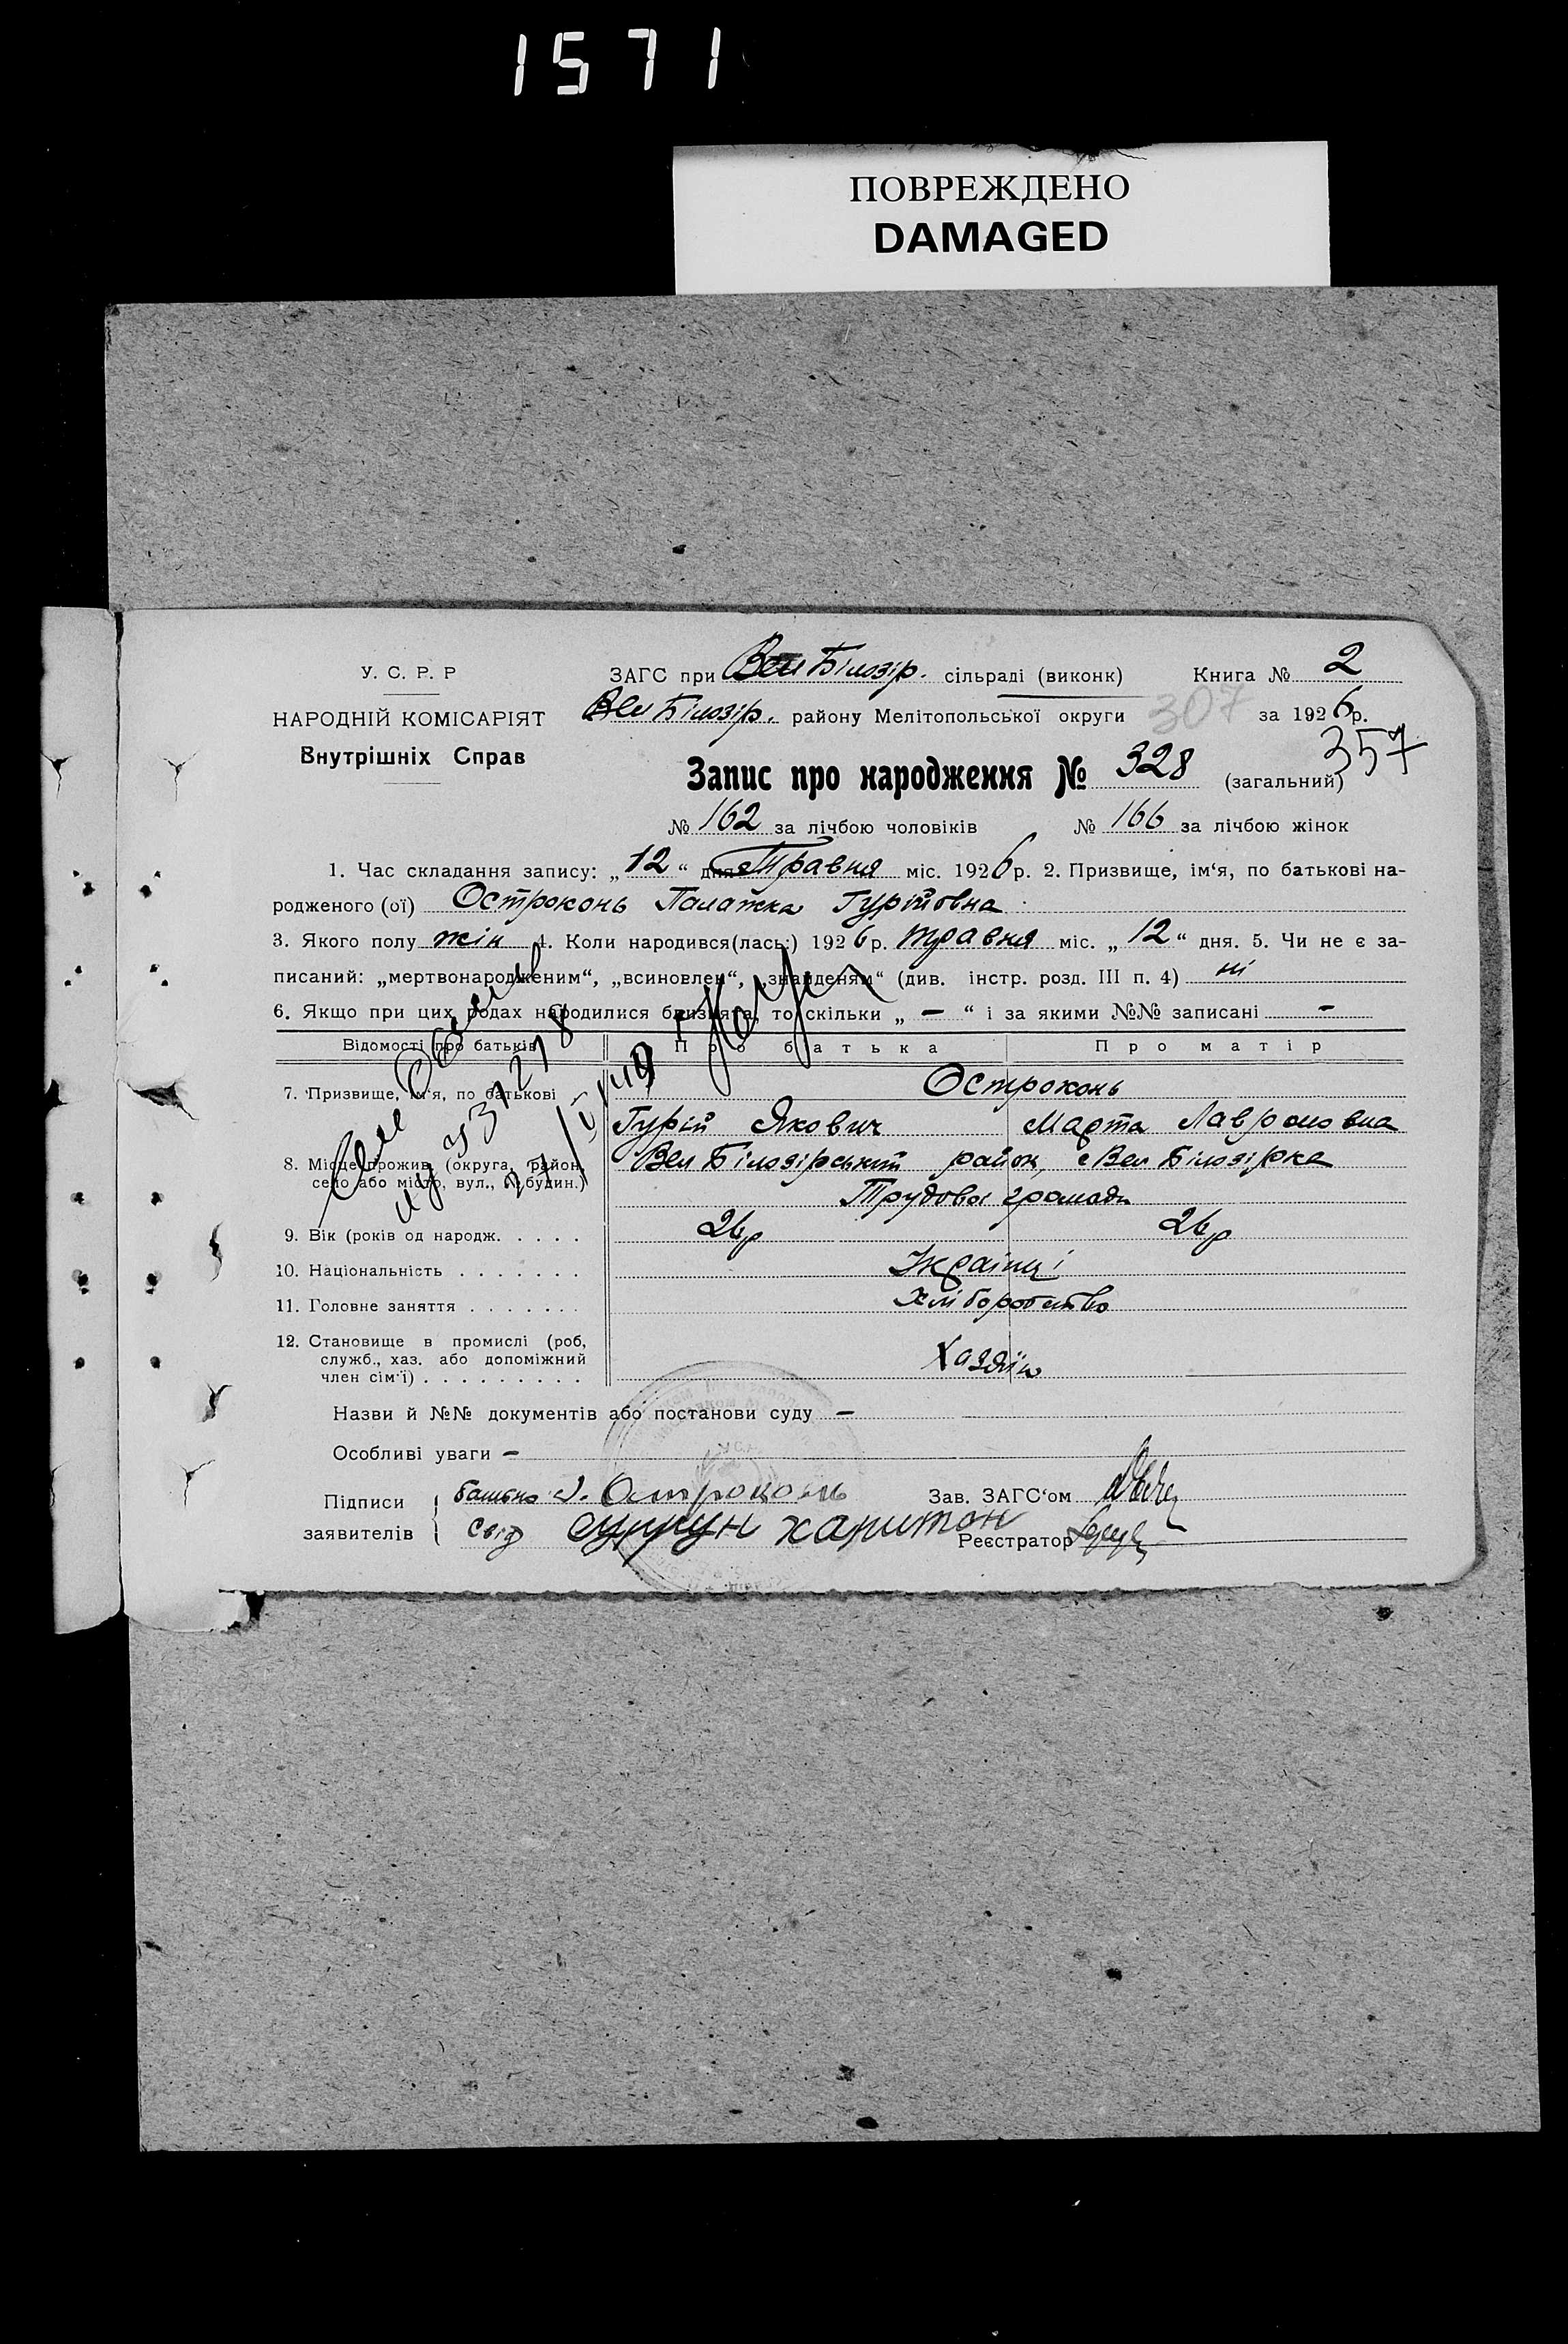 1571
ПОВРЕЖДЕНО
DAMAGED
У. С. Р. Р
НАРОДНІЙ КОМІСАРІЯТ
Внутрішніх Справ
ЗАГС при Вел Білозір. сільраді (виконк) Книга № 2
Вел Білозір. району Мелітопольської округи 307 за 1926 р.
357
Запис про народження № 328 (загальний)
№ 162 за лічбою чоловіків № 166 за лічбою жінок
1. Час складання запису: „12“ дня Травня міс. 1926 р. 2. Призвище, ім‘я, по батькові на-
родженого (ої) Остроконь Палажка Гурійовна
3. Якого полу жін 4. Коли народився(лась:) 1926 р. травня міс. „12“ дня. 5. Чи не є за-
писаний: „мертвонародженим“, „всиновлен“, „знайденям“ (див. інстр. розд. III п. 4) ні
6. Якщо при цих родах народилися близнята, то скільки „ – “ і за якими №№ записані –
Відомості про батьків Про батька Про матір
7. Призвище, ім‘я, по батькові Остроконь
Гурій Якович Марта Лавроновна
8. Місце прожив. (округа, район, Вел Білозірський район, с Вел Білозірка
село або місто, вул., № будин.) Трудова громада
9. Вік (років од народж. . . . . 26 р 26 р
10. Національність . . . . . . . Українці
11. Головне заняття . . . . . . . Хліборобство
12. Становище в промислі (роб, служб., хаз. або допоміжний член сім‘ї) . . . . . . . . . Хазяїн
Назви й №№ документів або постанови суду –
Особливі уваги –
Підписи заявителів батько Остроконь Зав. ЗАГС‘ом
Свід Харитон Реєстратор